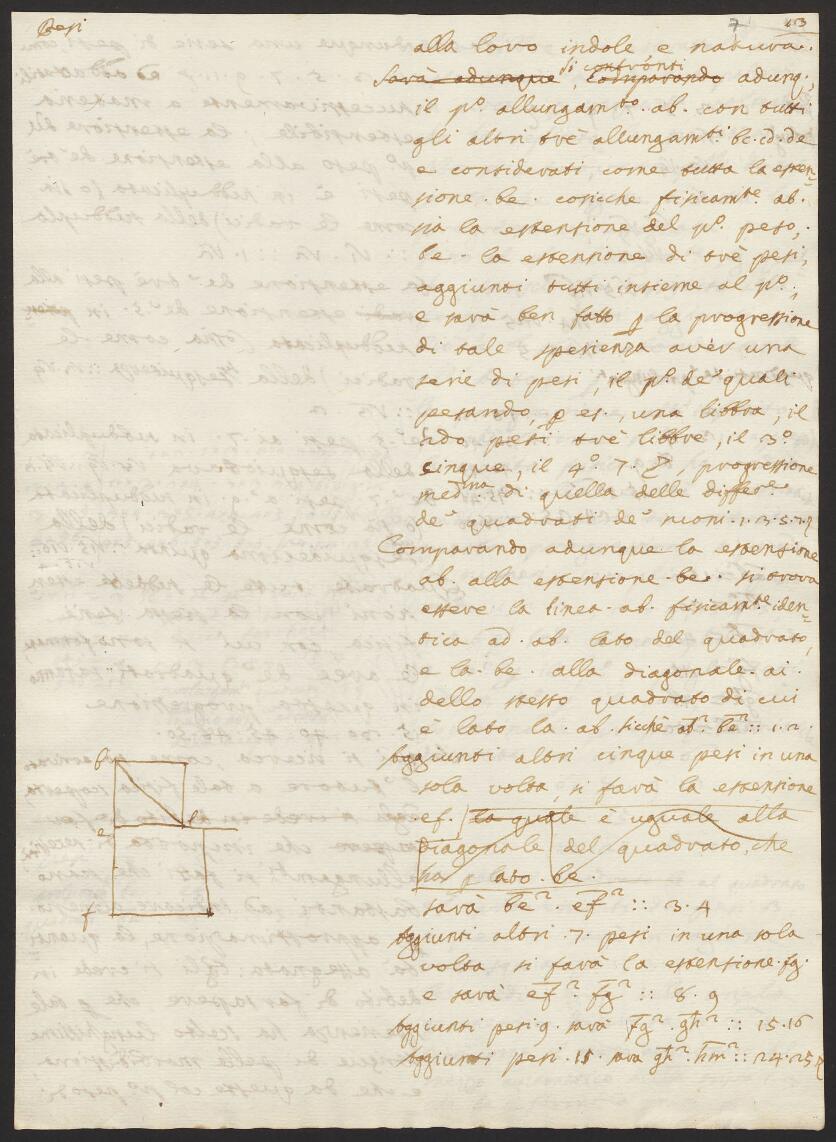 Pesi
7 43
alla loro indole e natura.
si confronti
Sarà adunque, comparando adunq;
il pº. allungam.to ab. con tutti
gli altri trè allungam.ti bc. cd. de
e considerati come tutta la esten=
sione. be. cosicche fisicam.te ab.
sia la estensione del pº. peso,
be. la estensione di trè pesi,
aggiunti tutti insieme al pº.;
e sarà ben fatto p la progressione
di tale sperienza aver una
serie di pesi, il pº. de' quali
pesando, p es., una libbra, il
2do, pesi trè libbre, il 3º
cinque, il 4º. 7. progressione
med.ma di quella delle differ.e
de' quadrati de' nuoni. 1. 3. 5. 7.
Comparando adunque la estensione
ab. alla estensione. be. si trova
essere la linea. ab. fisicam.te iden=
tica ad. ab. lato del quadrato,
e la. be. alla diagonale. ai.
dello stesso quadrato di cui
è lato la. ab. sicchè ab². be² :: 1. 2.
Aggiunti altri cinque pesi in una
sola volta, si farà la estensione
.ef. la quale è uguale alla
Diagonale del quadrato, che
ha p lato. be.
sarà be². ef² :: 3. 4
Aggiunti altri. 7. pesi in una sola
volta si farà la estensione. fg.
e sarà ef². fg² :: 8. 9
Aggiunti pesi. 9. sarà fg². gh² :: 15. 16
Aggiunti pesi. 15. sarà gh². hm² :: 24. 25
b
e
f